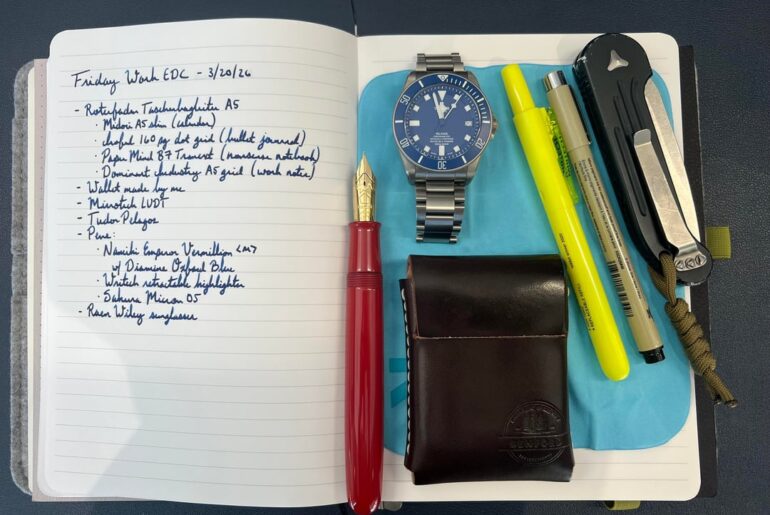 Friday Work EDC - 3/20/26
- Roterfaden Taschenbegleiter A5
· Midori A5 slim (calendar)
· 160 pg dot grid (bullet journal)
· Paper Mind B7 Transit (nonsense notebook)
· Dominant Industry A5 grid (work notes)
- Wallet made by me
- Microtech LUDT
- Tudor Pelagos
- Pens:
· Namiki Emperor Vermillion <M>
w/ Diamine Oxford Blue
· Writech retractable highlighter
· Sakura Micron 05
- Raen Wiley sunglasses